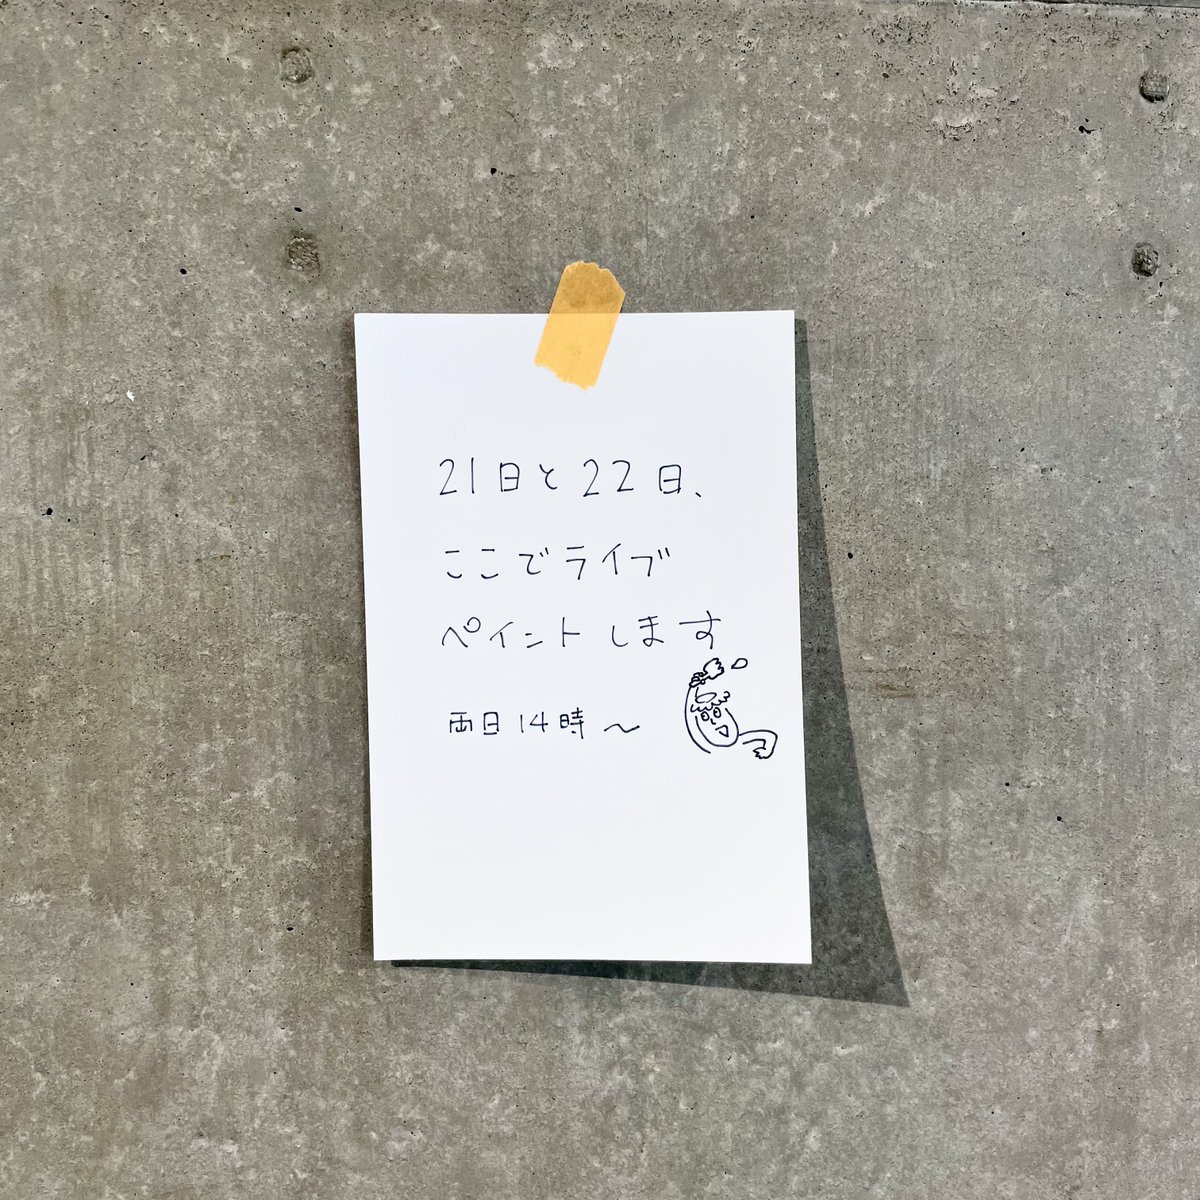 21日と22日、
ここでライブ
ペイントします
両日14時〜